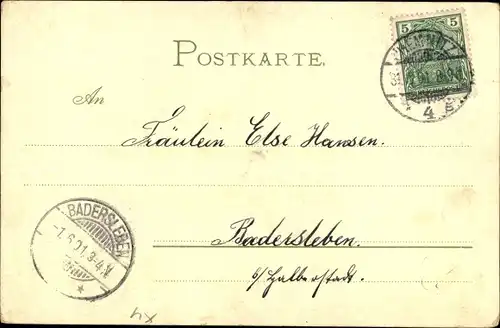 5 5
POSTKARTE.
4 s
An
Fräulein Else Hansen.
BADERSLEBEN
1.6.01. 3-4.N
*
Badersleben.
b/Halberstadt.